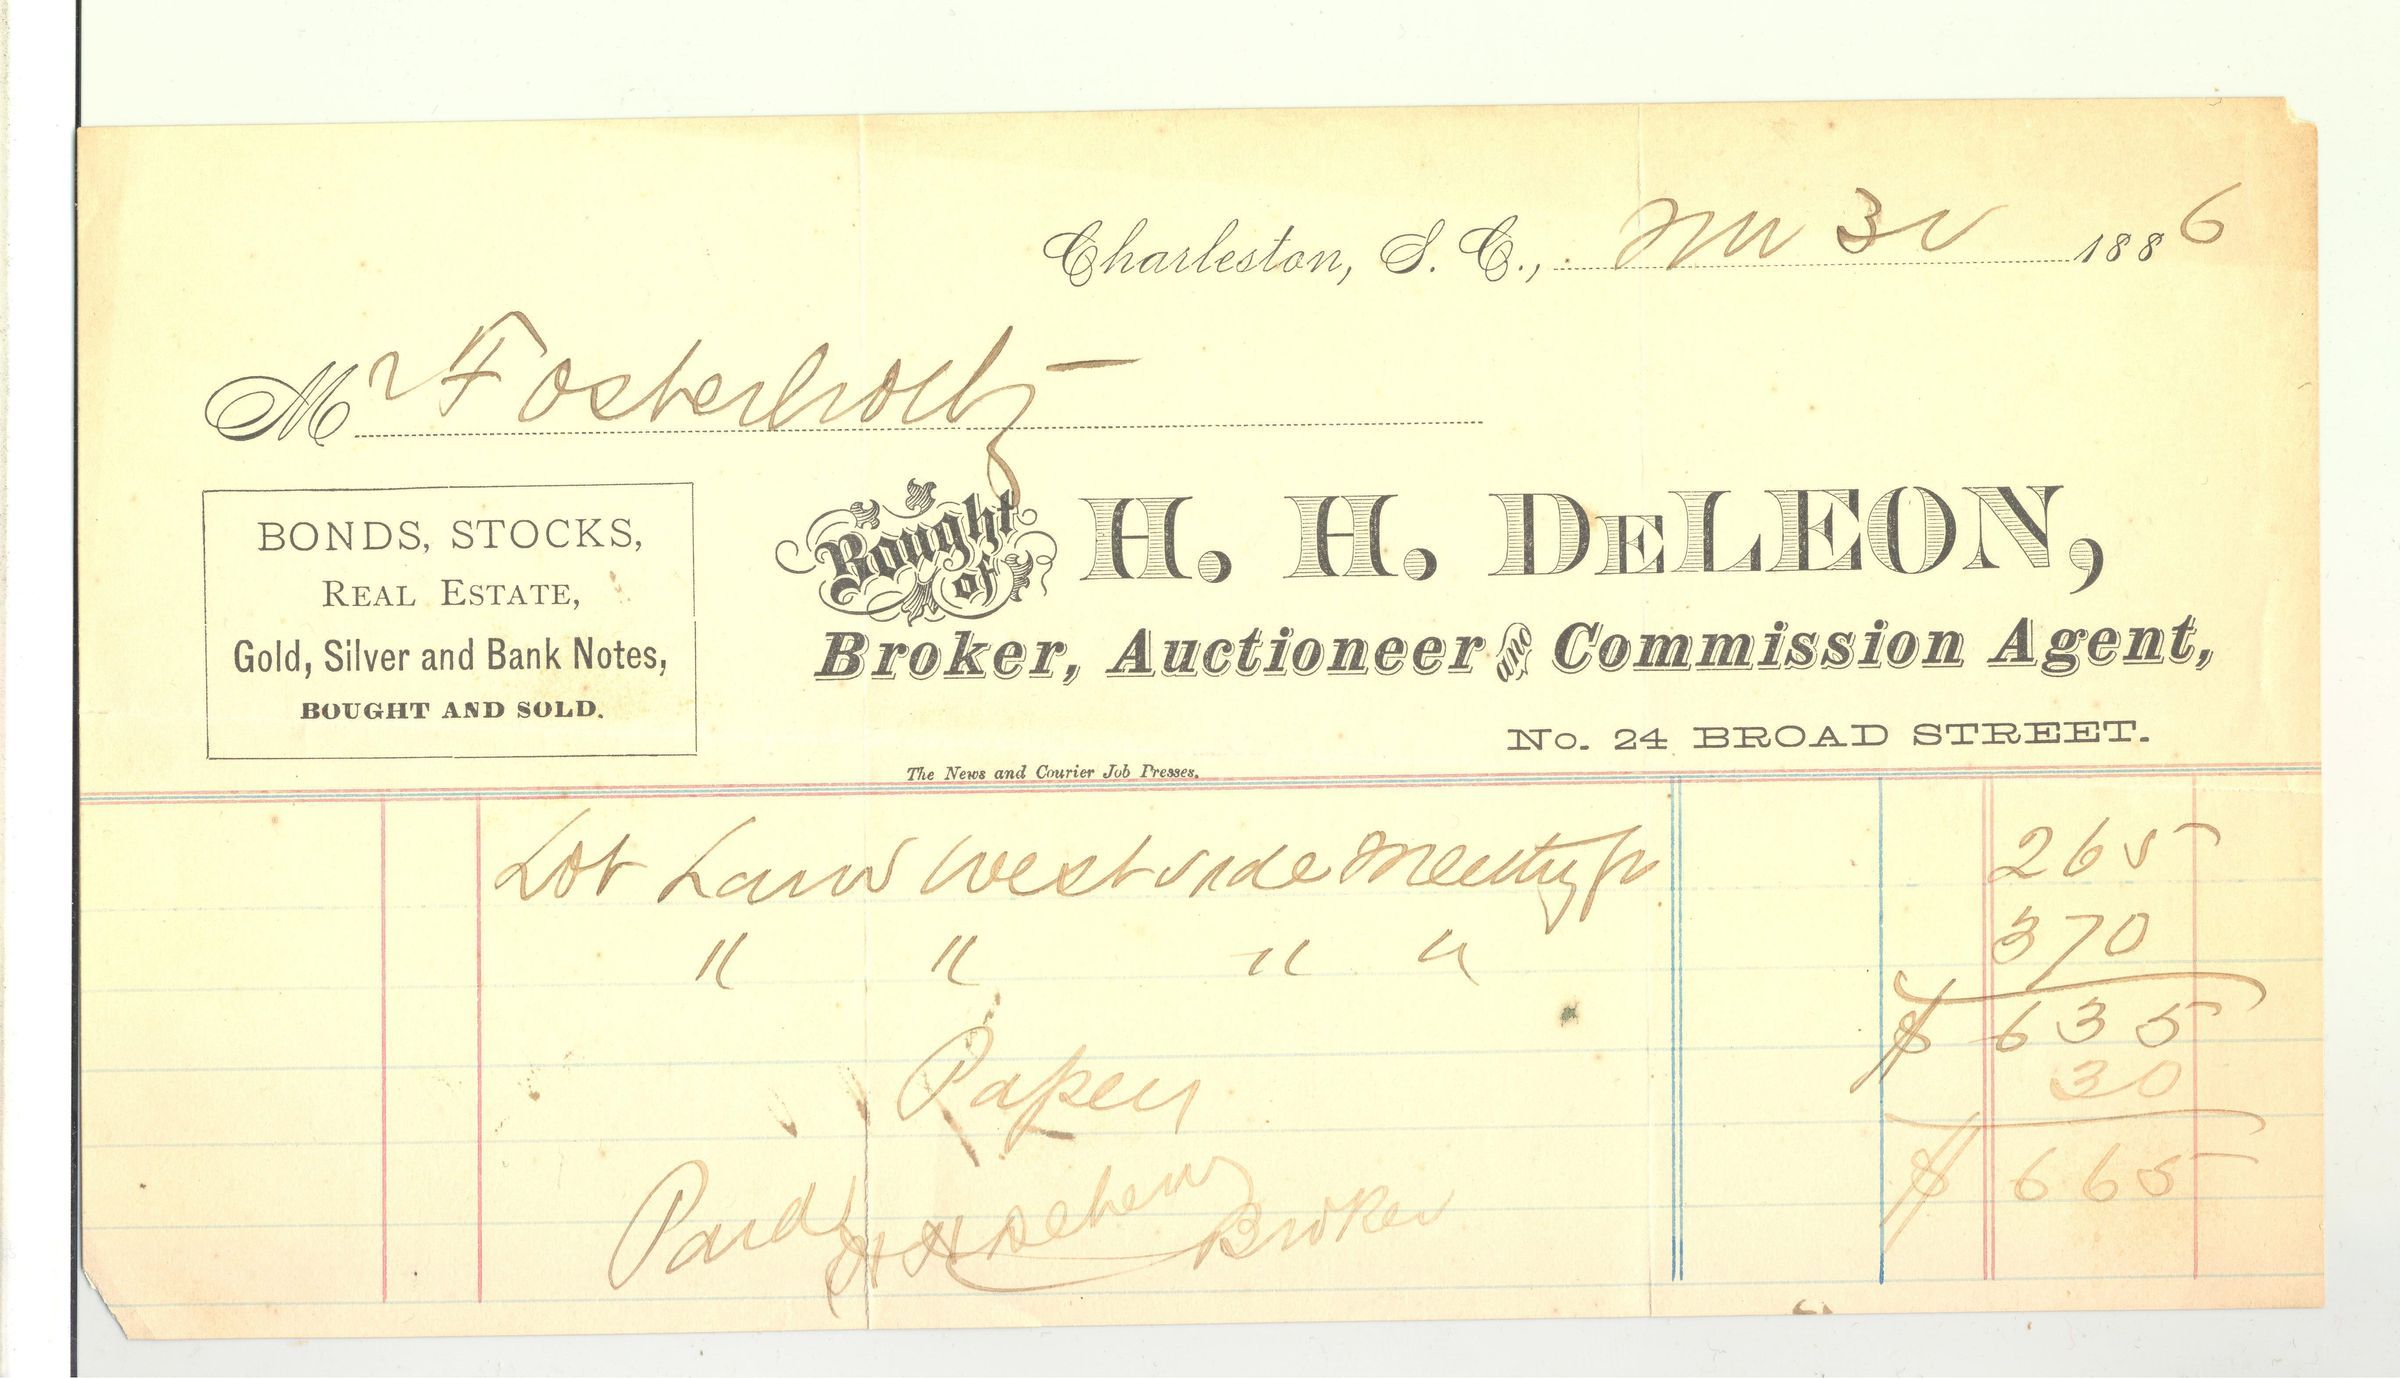 Charleston, S. C., 3 1886
Mr Fosterholtz
BONDS, STOCKS,
REAL ESTATE,
Gold, Silver and Bank Notes,
BOUGHT AND SOLD.
Bought of H. H. DeLEON,
Broker, Auctioneer and Commission Agent,
No. 24 BROAD STREET.
The News and Courier Job Presses.
Lot Land West side Meeting 265
" " " " 370
$ 635
Papers 30
$ 665
Paid
H H DeLeon Broker